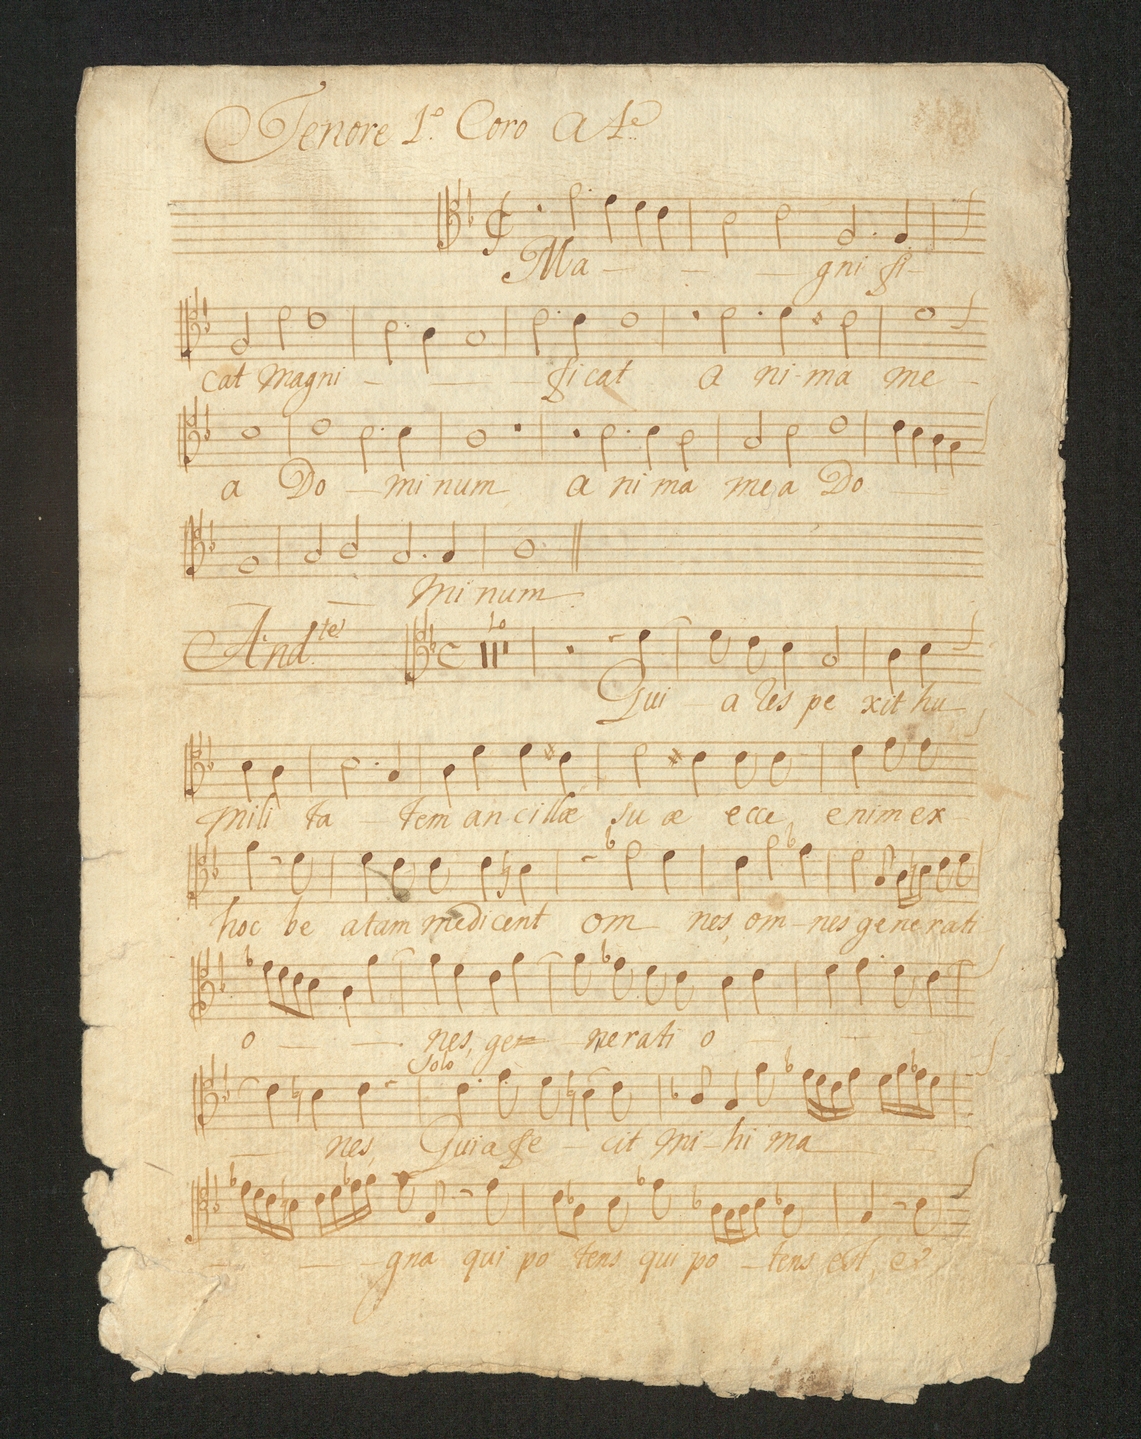 Tenore 1.º Coro A 4.e
Ma - - - gni fi-
cat Magni - - - ficat A ni-ma me -
a Do - minum A ni ma mea Do -
- minum
And.te 10
Qui - a Res pe xit hu
mili ta - tem an-cillæ su æ ecce enim ex-
hoc be atam me dicent om nes, om-nes generati
o - - nes, ge- nerati o - -
Solo
- nes, Quia fe - cit Mi-hi ma
- - gna qui po tens qui po - tens est, et